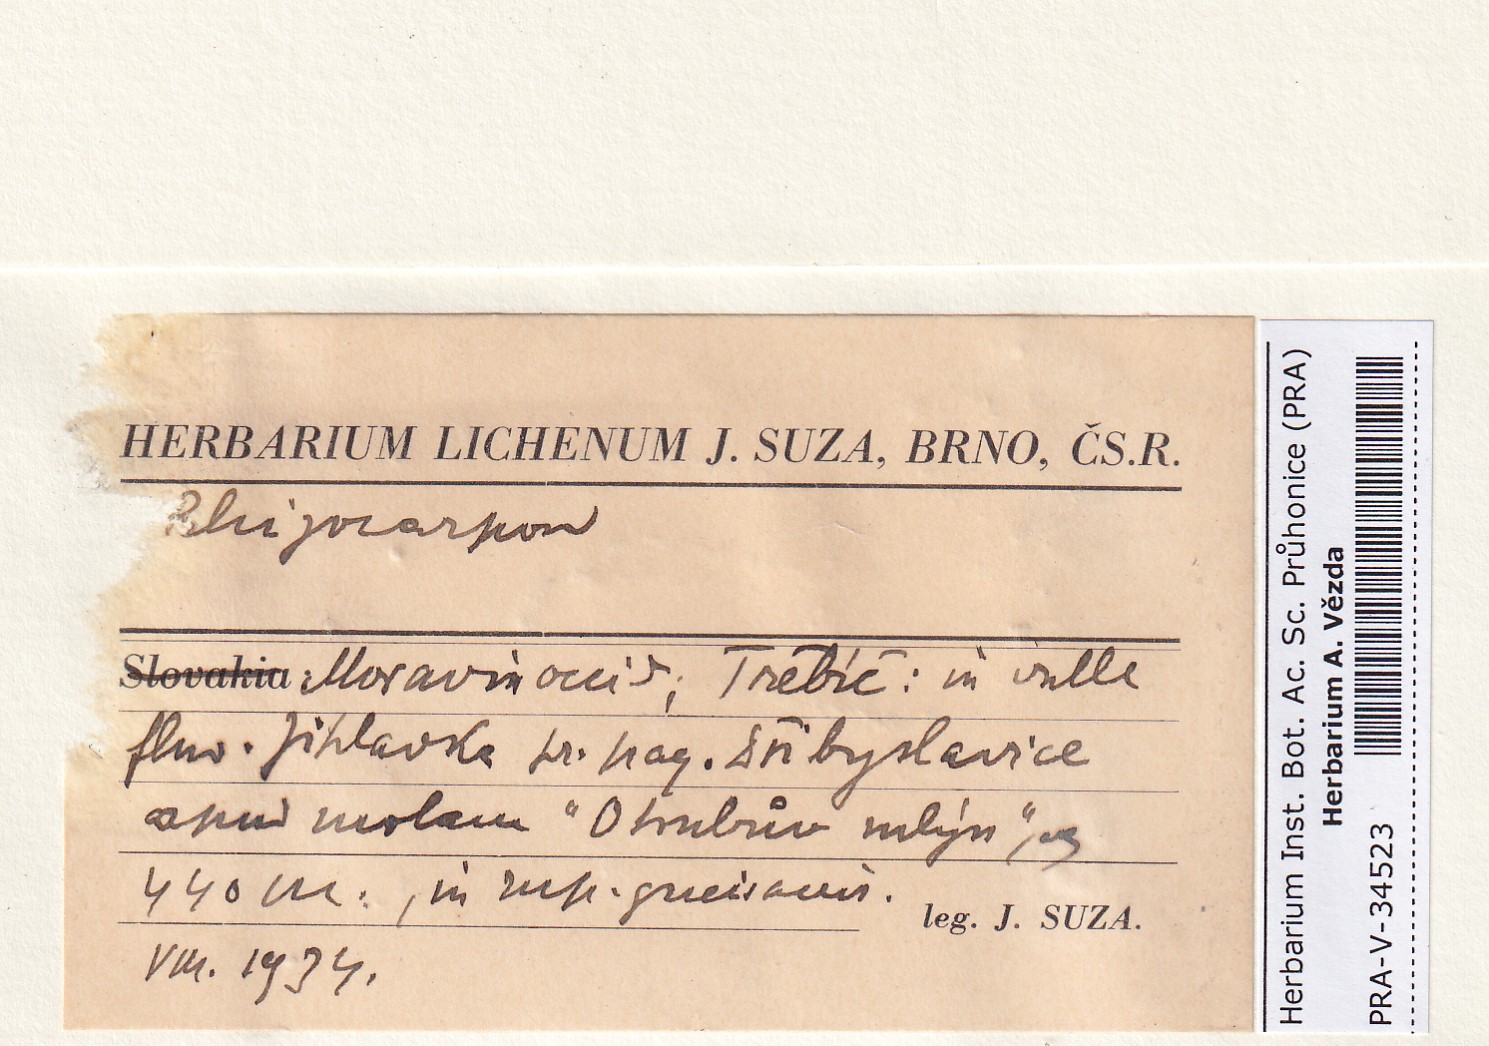 HERBARIUM LICHENUM J. SUZA, BRNO, ČS.R.
Rhizocarpon
Slovakia: Moravia occid; Třebíč: in valle
fluv. Jihlavka pr. pag. Střibyslavice
apud molam "Otrubův mlýn",
440 m., in rup. gneisaceis.
leg. J. SUZA.
VIII. 1934.
Herbarium Inst. Bot. Ac. Sc. Průhonice (PRA)
Herbarium A. Vězda
PRA-V-34523